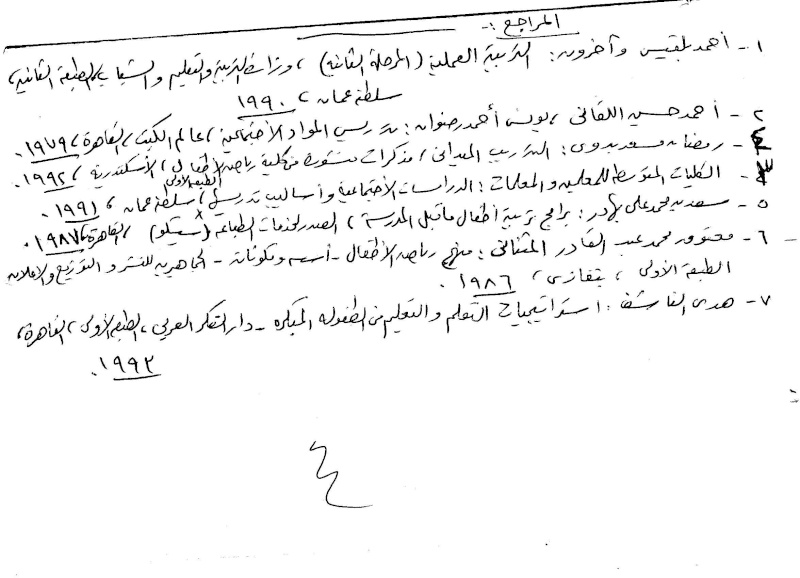 المراجع :-
١- أحمد بلقيس وآخرون : التربية العملية (المرحلة الثانية) ، وزارة التربية والتعليم والشباب ، الطبعة الثانية ،
سلطنة عمان ، ١٩٩٠ .
٢- أحمد حسين اللقاني ، يونس أحمد رضوان : تدريس المواد الاجتماعية ، عالم الكتب ، القاهرة ، ١٩٧٩ .
٤- رمضان مسعد بدوى : التدريب الميداني ، مذكرات منشورة من كلية رياض الأطفال ، الأسكندرية ، ١٩٩٢ .
٣- الكليات المتوسطة للمعلمين والمعلمات : الدراسات الاجتماعية وأساليب تدريسها ، الطبعة الأولى ، سلطنة عمان ، ١٩٩١ .
٥- سعدية محمد على بهادر : برامج تربية أطفال ما قبل المدرسة ، الصدر لخدمات الطباعة (سيسكو) ، القاهرة ، ١٩٨٧ .
٦- محمد عبد القادر : منهج رياض الأطفال - أسسه ومكوناته - الجماهيرية للنشر و التوزيع والاعلان
الطبعة الأولى ، بنغازى ، ١٩٨٦ .
٧- هدى الناشف : استراتيجيات التعلم والتعليم فى الطفولة المبكرة - دار الفكر العربي ، الطبعة الأولى ، القاهرة ،
١٩٩٣ .
٤